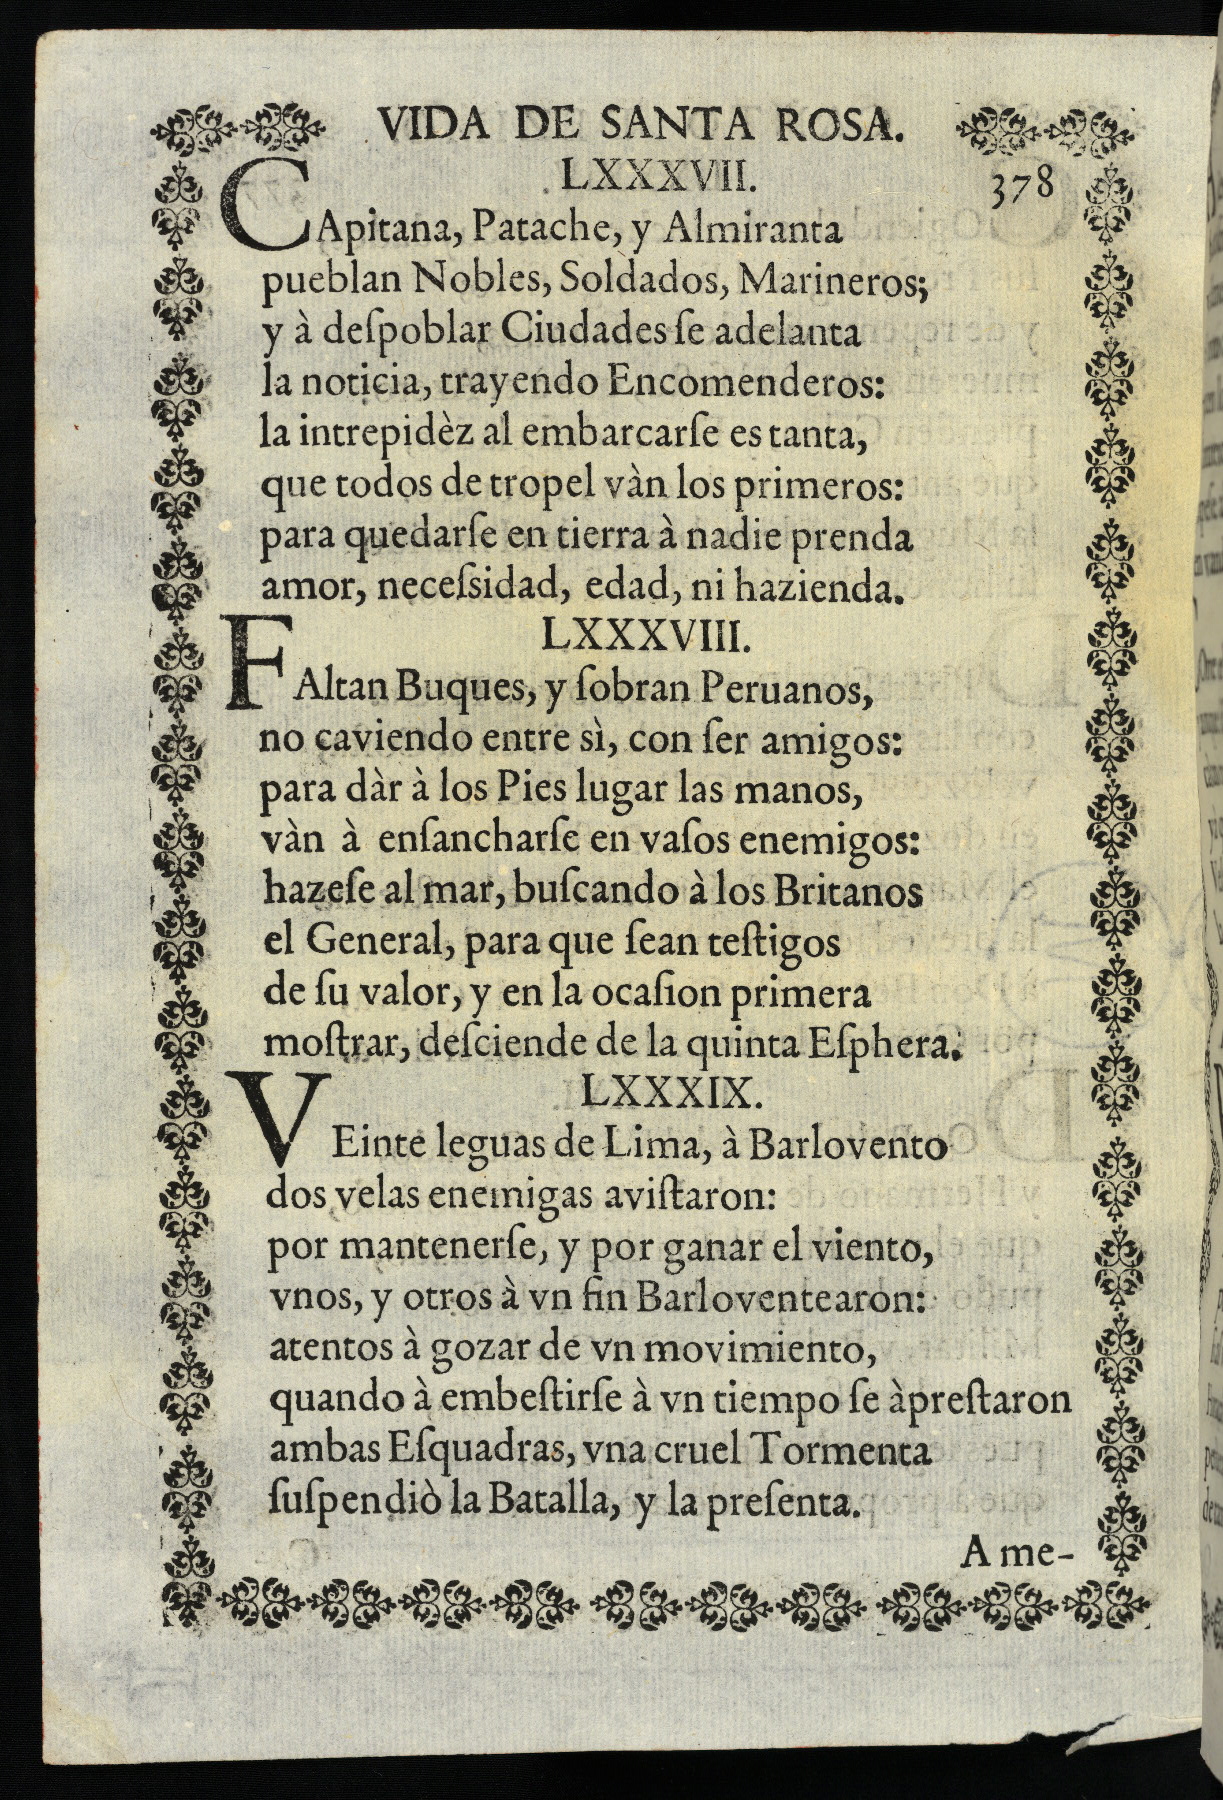 VIDA DE SANTA ROSA.
LXXXVII.
378
CApitana, Patache, y Almiranta
pueblan Nobles, Soldados, Marineros;
y à deſpoblar Ciudades ſe adelanta
la noticia, trayendo Encomenderos:
la intrepidèz al embarcarſe es tanta,
que todos de tropel vàn los primeros:
para quedarſe en tierra à nadie prenda
amor, neceſsidad, edad, ni hazienda.
LXXXVIII.
FAltan Buques, y ſobran Peruanos,
no caviendo entre sì, con ſer amigos:
para dàr à los Pies lugar las manos,
vàn à enſancharſe en vaſos enemigos:
hazeſe al mar, buſcando à los Britanos
el General, para que ſean teſtigos
de ſu valor, y en la ocaſion primera
moſtrar, deſciende de la quinta Eſphera.
LXXXIX.
VEinte leguas de Lima, à Barlovento
dos velas enemigas aviſtaron:
por mantenerſe, y por ganar el viento,
vnos, y otros à vn fin Barloventearon:
atentos à gozar de vn movimiento,
quando à embeſtirſe à vn tiempo ſe àpreſtaron
ambas Eſquadras, vna cruel Tormenta
ſuſpendiò la Batalla, y la preſenta.
A me-